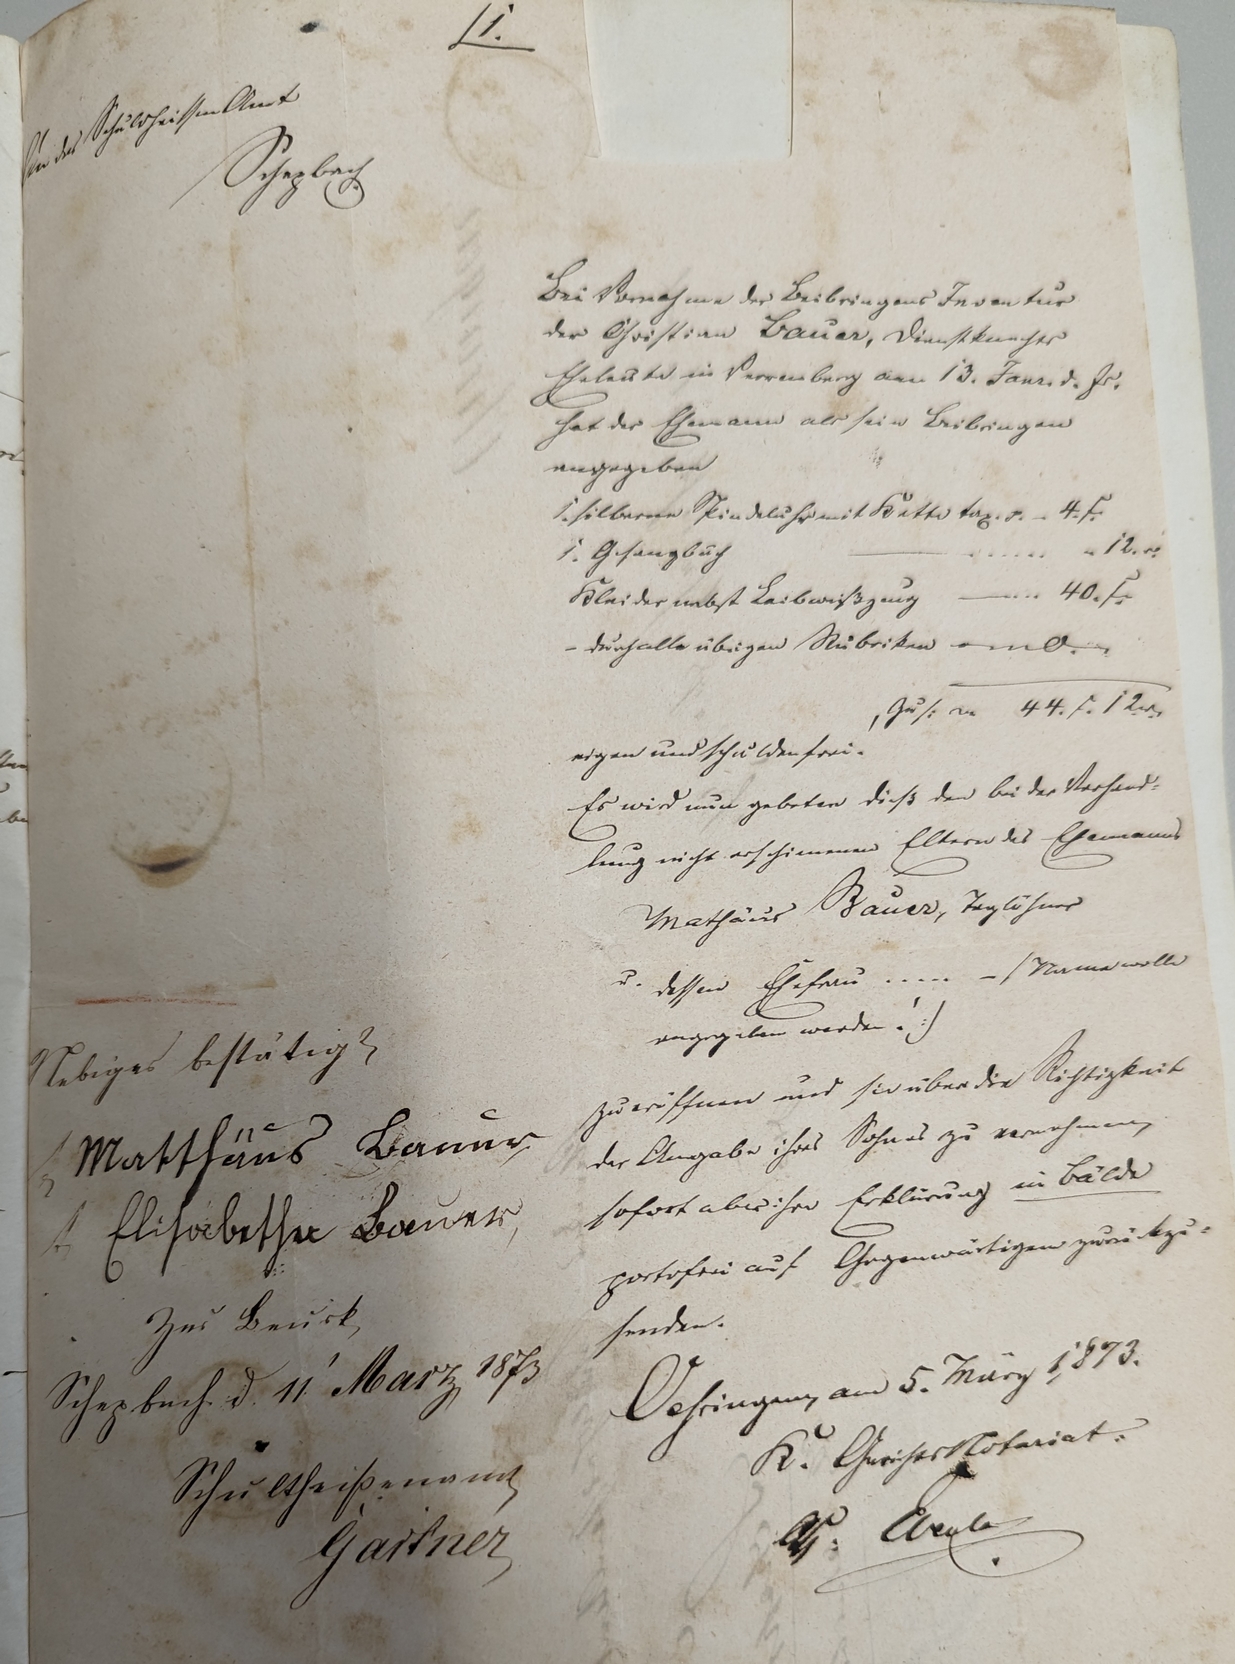 1.
An das Schuldheissen Amt
Scheppach
Bei Vornahme der Beibringens Inventur
der Christian Bauer, Dienstknechts
Eheleute in Verrenberg am 13. Janr. d. Js.
hat der Ehemann als sein Beibringen
angegeben
1. silberne Spindeluhr mit Kette tax. 4. f.
1. Gesangbuch 12. x.
Kleider nebst Leibweißzeug 40. f.
- durch alle übrigen Rubriken 0.
Zus. 44. f. 12 x.
eigen und schuldenfrei.
Es wird nun gebeten dieß den bei der Verhand-
lung nicht erschienenen Eltern des Ehemanns
Mathäus Bauer, Taglöhner
u. dessen Ehefrau ..... -/: Name wolle
angegeben werden! :/
zu eröffnen und sie über die Richtigkeit
der Angabe ihres Sohnes zu vernehmen,
sofort aber ihre Erklärung in Bälde
portofrei auf Gegenwärtigem zurückzu-
senden.
Oehringen, am 5. März 1873.
K. Gerichts Notariat.
Nebiges bestätigt,
Matthäus Bauer
Elisabetha Bauer,
Zur Beurk.
Scheppach d. 11 März 1873
Schultheißenamt
Gärtner